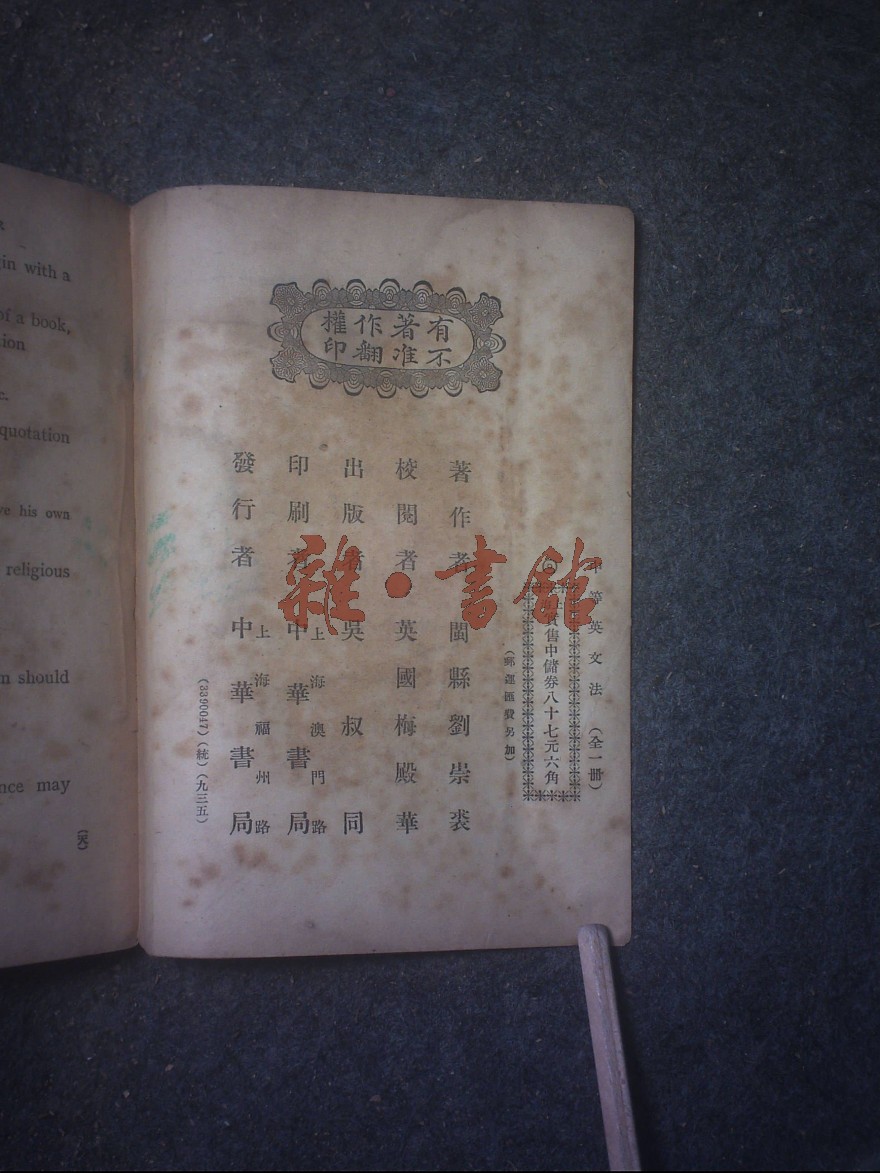 in with a
of a book,
ion
c.
quotation
ve his own
religious
n should
nce may
有著作權
不准翻印
中等英文法 (全一冊)
實售中儲券八十七元六角
(郵運匯費另加)
著作者 閩縣劉崇裘
校閱者 英國梅殿華
出版者 吳叔同
印刷者 上海澳門路 中華書局
發行者 上海福州路 中華書局
(3390047)(統)(九三五)
雜·書館